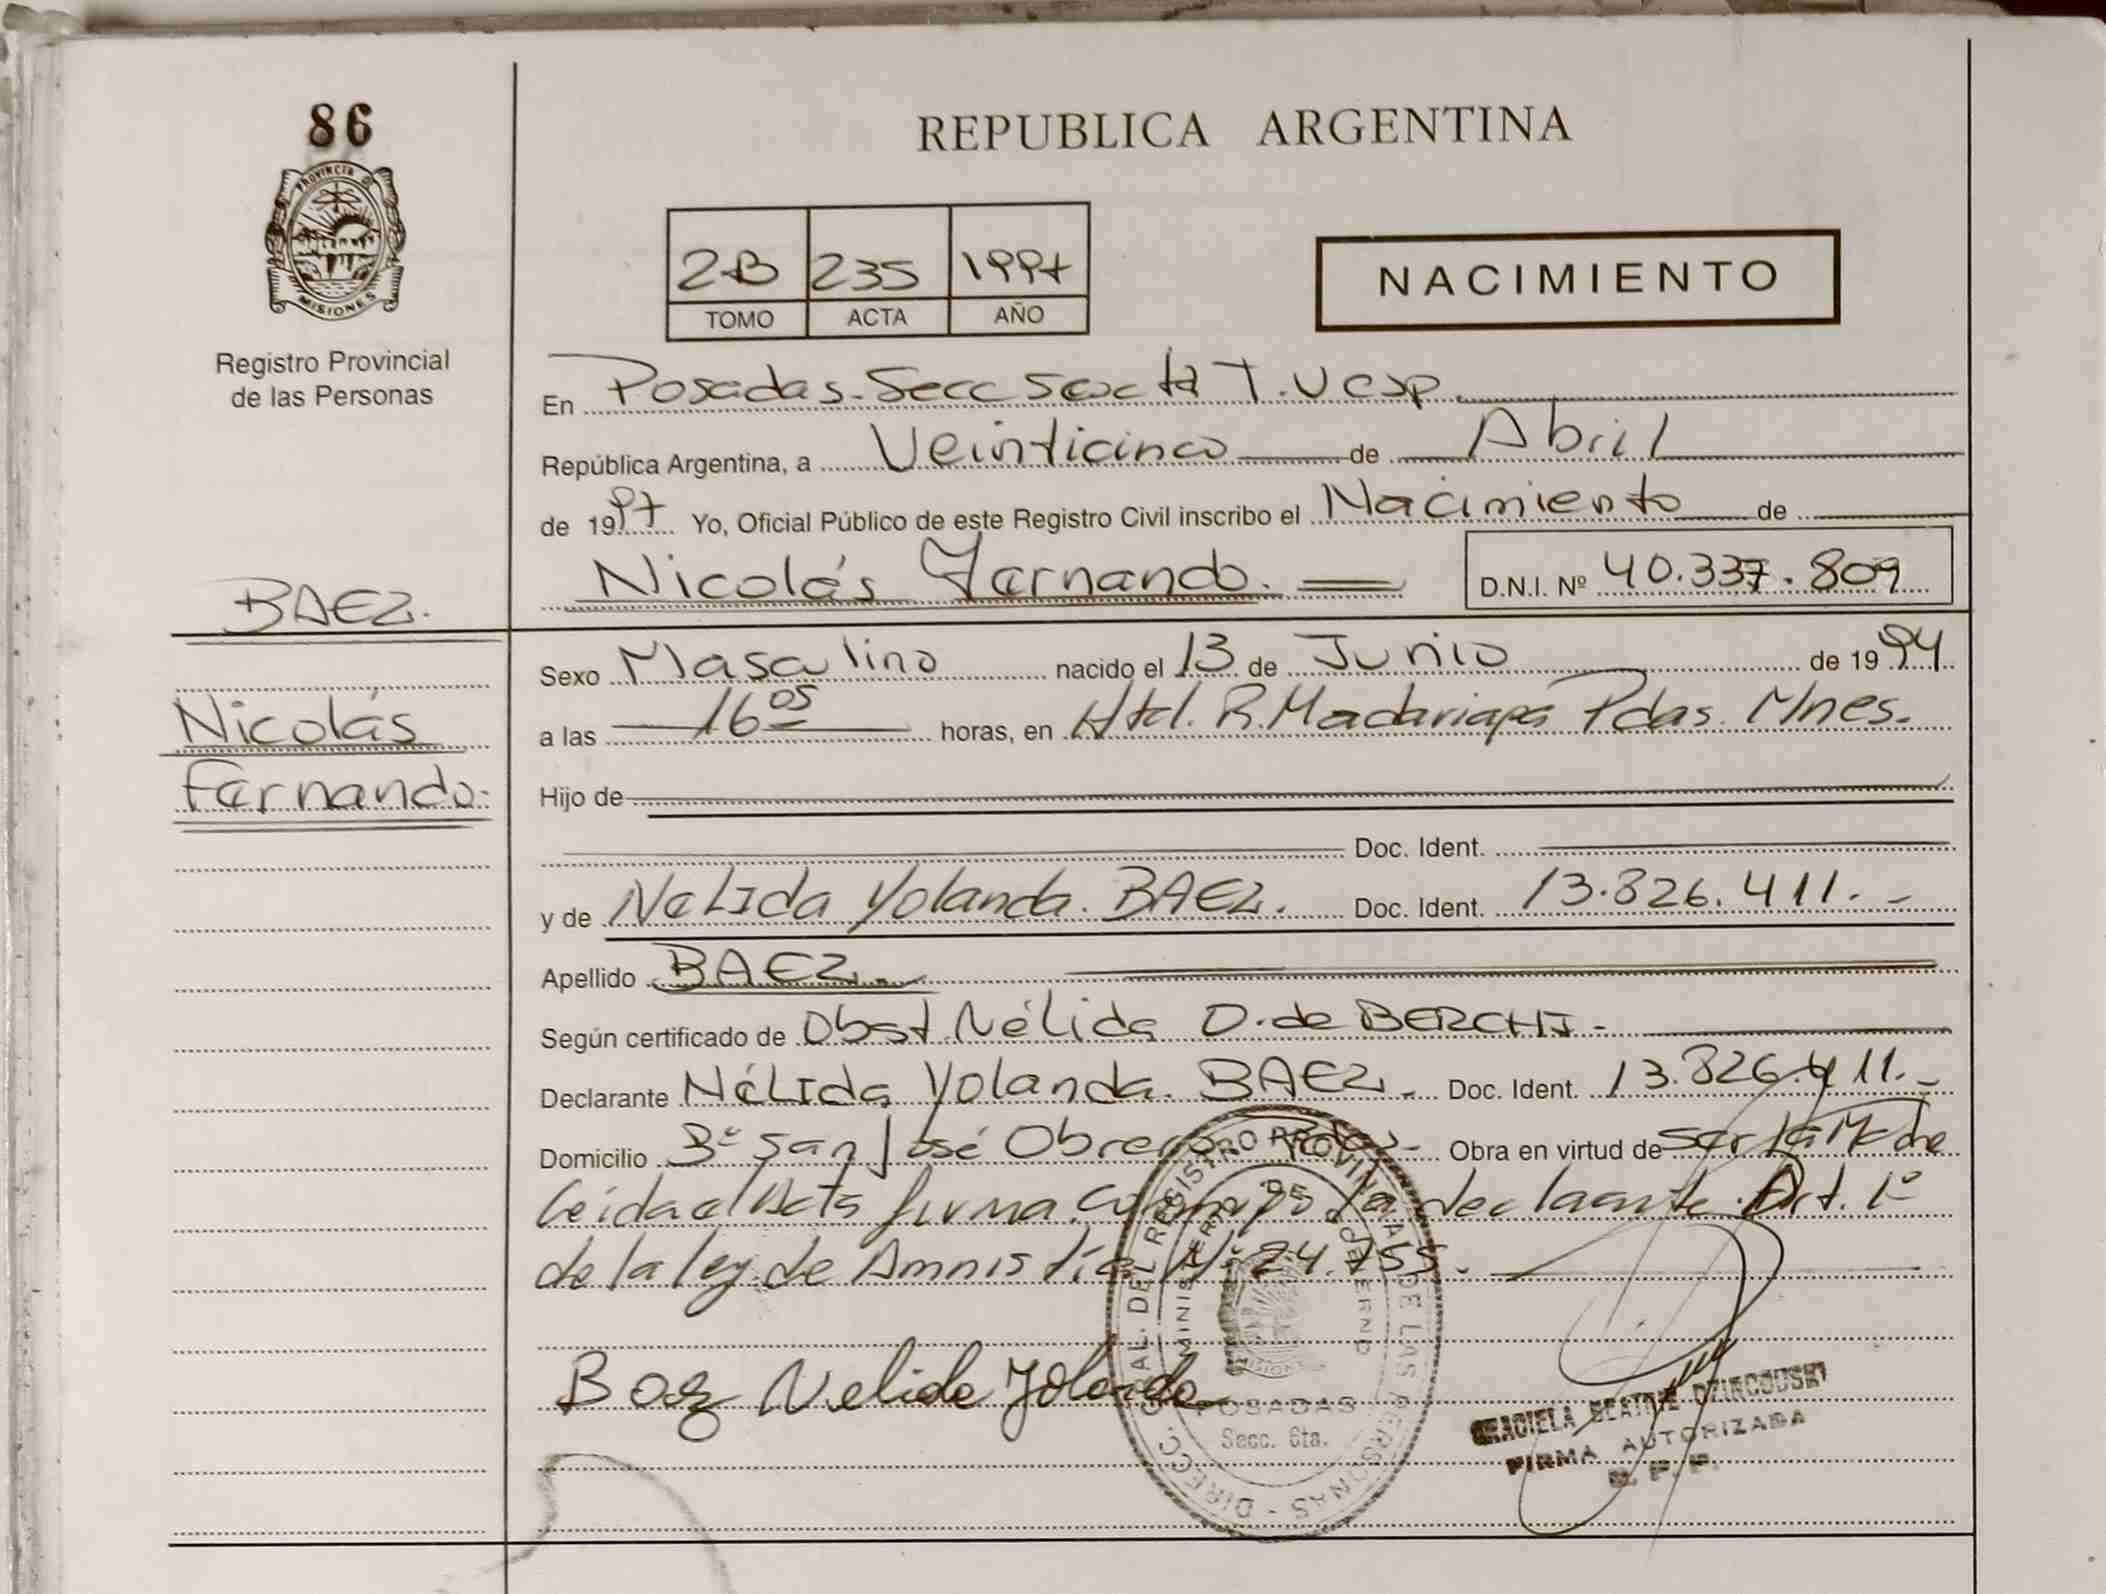 86
PROVINCIA DE
MISIONES
Registro Provincial
de las Personas
BAEZ.
Nicolás
Fernando.
REPUBLICA ARGENTINA
2B 235 1997
TOMO ACTA AÑO
NACIMIENTO
En Posadas. Secc Sexta T. Vesp.
República Argentina, a Veinticinco de Abril
de 1997 Yo, Oficial Público de este Registro Civil inscribo el Nacimiento de
Nicolás Fernando. D.N.I. Nº 40.337.809
Sexo Masculino nacido el 13 de Junio de 1994
a las 16 05 horas, en Htal. R. Madariaga Pdas. Mnes.
Hijo de
Doc. Ident.
y de Nelida Yolanda. BAEZ. Doc. Ident. 13.826.411.-
Apellido BAEZ.-
Según certificado de Obst. Nélida O. de BERCHI.-
Declarante Nélida Yolanda. BAEZ.- Doc. Ident. 13.826.411.-
Domicilio Bº San José Obrero Pdas.- Obra en virtud de ser la Madre
Leída el Acta firma conmigo la declarante. Art. 1º
de la ley de Amnistía Nº 24.755.
Baez Nelida Yolanda
DIRECC. GRAL. DEL REGISTRO PROVINCIAL DE LAS PERSONAS -
MINISTERIO DE GOBIERNO
MISIONES
POSADAS
Secc. 6ta.
GRACIELA BEATRIZ
FIRMA AUTORIZADA
R. P. P.